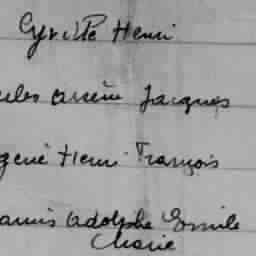 Cyrille Henri
ules arsène Jacques
gene Henri François
Adolphe Emile
Marie